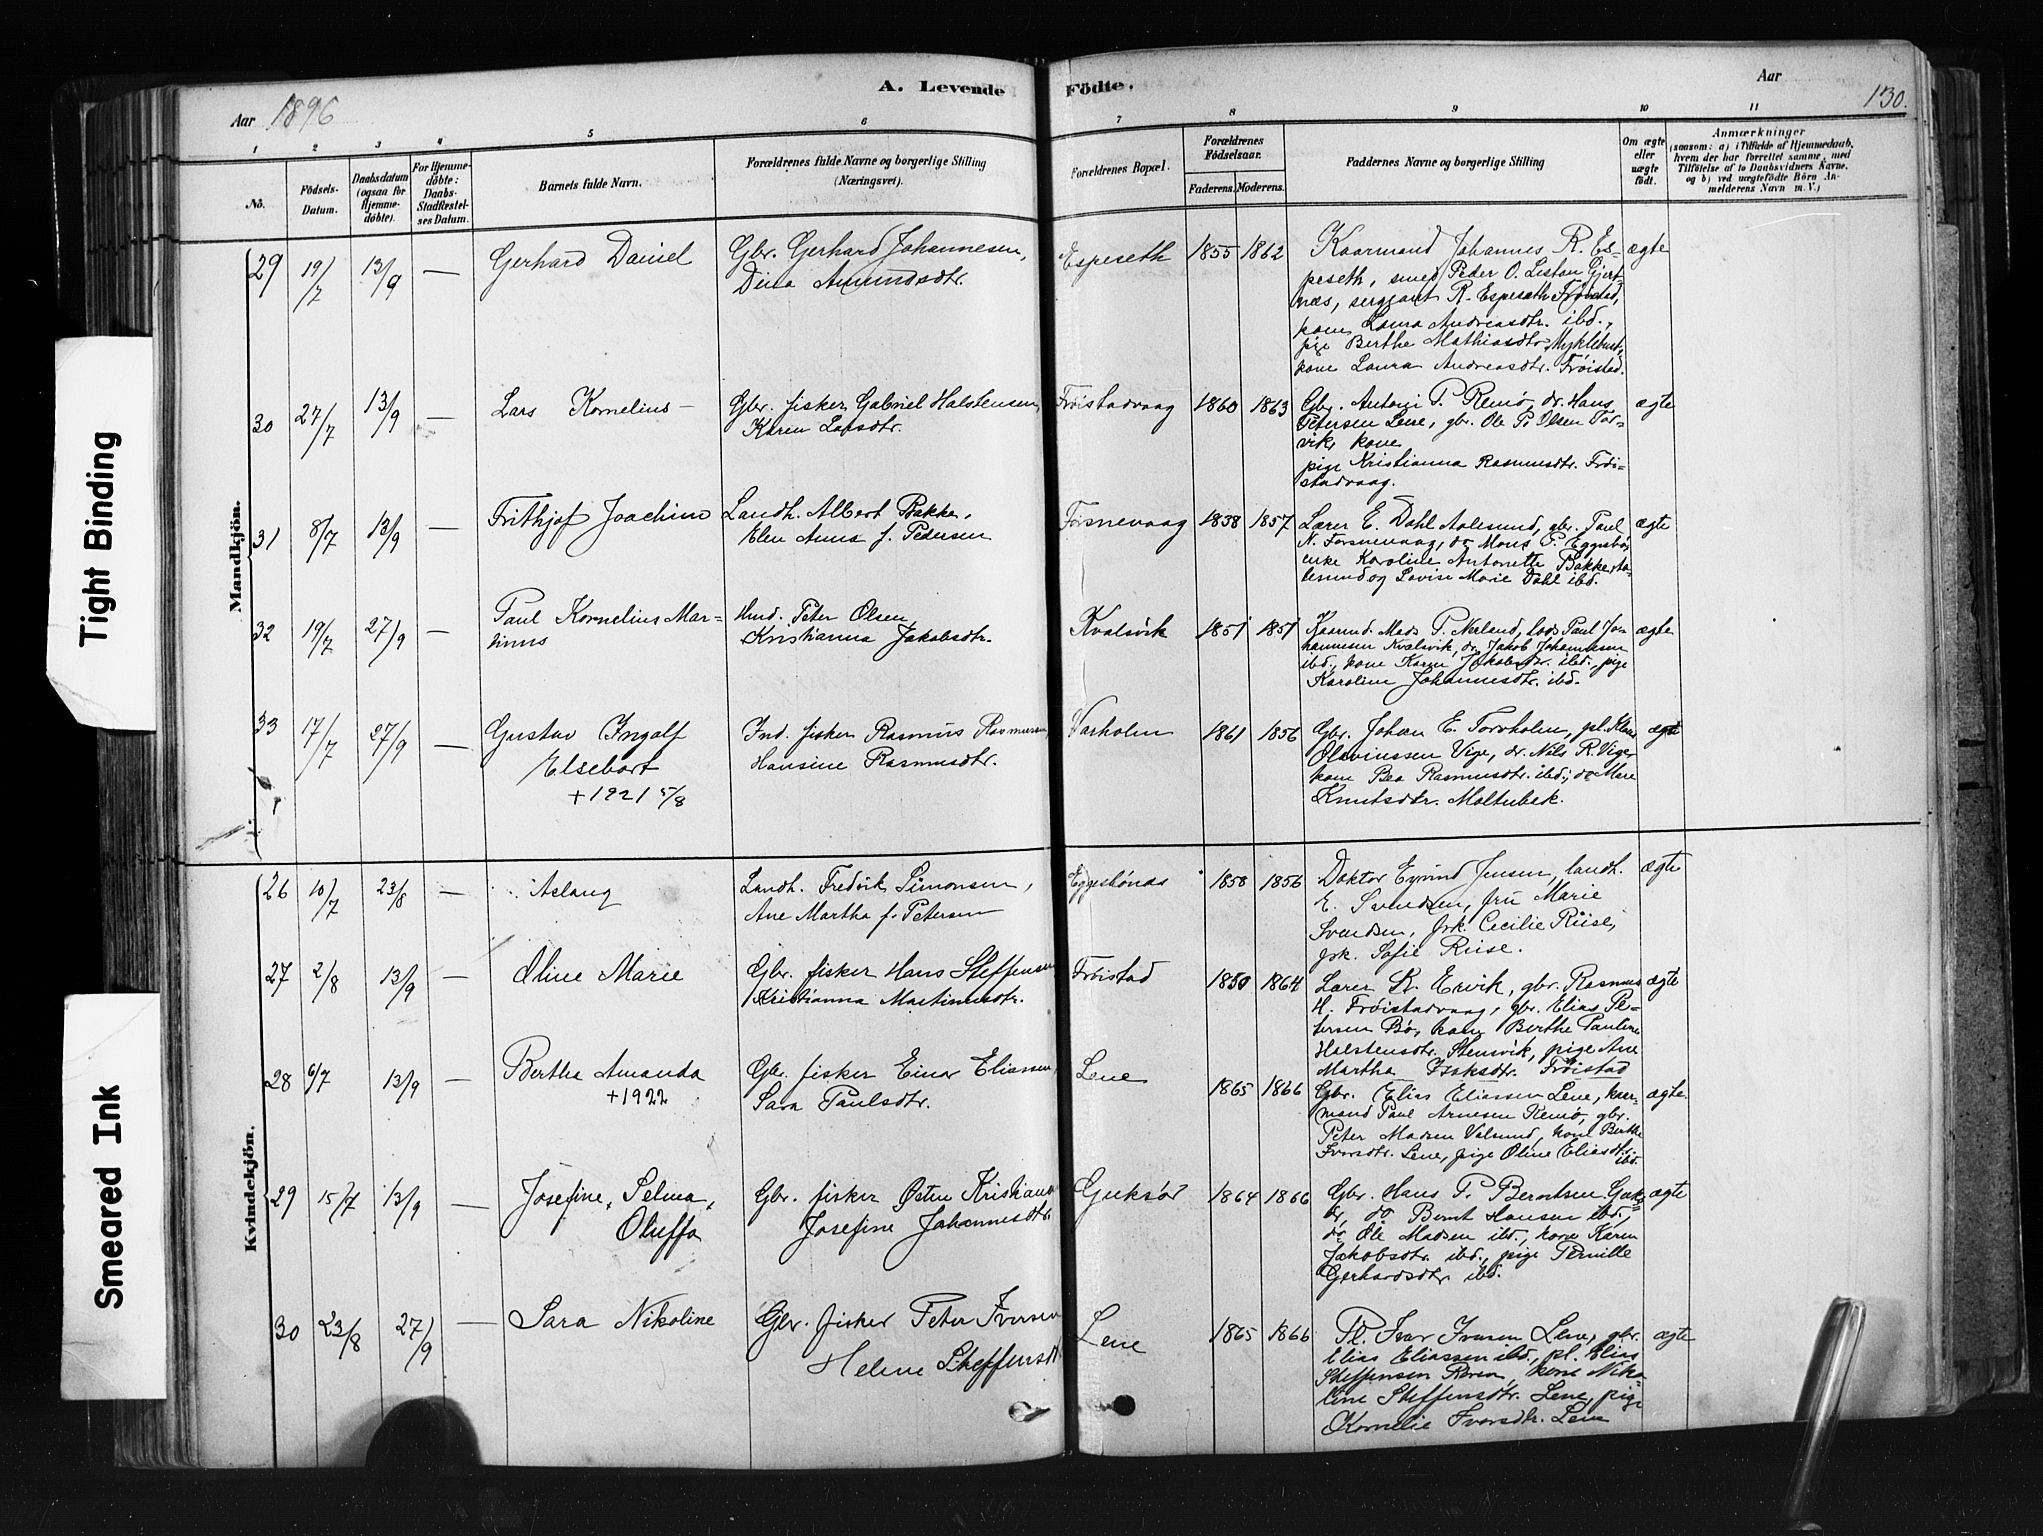 Aar 1896
A. Levende Födte.
Aar
130.
1 2 3 4 5 6 7 8 9 10 11
No.
Födsels-
Datum.
Daabsdatum
(ogsaa for
Hjemme-
döbte).
For Hjemme-
döbte:
Daabs-
Stadfæstel-
ses Datum.
Barnets fulde Navn.
Forældrenes fulde Navne og borgerlige Stilling
(Næringsvei).
Forældrenes Bopæl.
Forældrenes
Födselsaar.
Faderens. Moderens.
Faddernes Navne og borgerlige Stilling
Om ægte
eller
uægte
født.
Anmærkninger
(saasom: a) i Tilfælde af Hjemmedaab,
hvem der har forrettet samme, med
Tilföielse af to Daabsvidners Navne,
og b) ved uægtefödte Börn An-
melderens Navn m. V.)
Mandkjön.
29 19/7 13/9 — Gerhard Daniel
Gbr. Gerhard Johannesen,
Dina Amundsdtr.
Espeseth 1855 1862
Kaarmand Johannes R. Es-
peseth, smed Peder O. Liston Gjerf-
næs, sergeant R. Espeseth Frøistad,
kone Laura Andreasdtr. ibd.,
pige Berthe Mathiasdtr. Myklebust,
kone Laura Andreasdtr. Frøistad.
ægte
30 27/7 13/9 — Lars Kornelius —
Gbr. fisker Gabriel Halstensen,
Karen Larsdtr.
Frøistadvaag 1860 1863
Gbr. Antoni P. Remø, dr. Hans
Petersen Lene, gbr. Ole P. Olsen Tor-
vik, kone
pige Kristianna Rasmusdtr. Frøi-
stadvaag.
ægte
31 8/7 13/9 — Frithjof Joachim
Landh. Albert Bakke,
Elen Anna f. Pedersen
Forsnevaag 1858 1857
Lærer E. Dahl Aalesund, gbr. Paul
N. Forsnevaag, do Mons P. Eggesbø,
enke Karoline Antonette Bakke Aa-
lesund og Lovise Marie Dahl ibd.
ægte
32 19/7 27/9 — Paul Kornelius Mar-
tinus
Hmd. Peter Olsen
Kristianna Jakobsdtr.
Kvalsvik 1851 1851
Kaarmd. Mads P. Nerland, lods Paul Jo-
hannesen Kvalsvik, dr. Jakob Johannesen
ibd., kone Karen Jakobsdtr. ibd., pige
Karoline Johannesdtr. ibd.
ægte
33 17/7 27/9 — Gustav Ingolf
Elsebart
+1921 5/8
Ind. fisker Rasmus Rasmussen,
Hansine Rasmusdtr.
Varholm 1861 1856
Gbr. Johan E. Torvholm, pl. Klaus
Olavinssen Vige, dr. Nils R. Vige,
kone Bea Rasmusdtr. ibd., do Mare
Knutsdtr. Moltubak.
ægte
Kvindekjön.
26 10/7 23/8 — Aslaug
Landh. Fredrik Simonsen,
Ane Martha f. Petersen
Eggesbønæs 1858 1856
Doktor Eyvind Jensen, landh.
E. Svendsen, fru Marie
Svendsen, frk. Cecilie Riise,
frk. Sofie Riise.
ægte
27 2/8 13/9 — Oline Marie
Gbr. fisker Hans Steffensen
Kristianna Martinusdtr.
Frøistad 1850 1864
Lærer K. Ervik, gbr. Rasmus
H. Frøistadvaag, gbr. Elias Pe-
tersen Bø, kone Berthe Pauline
Halstensdtr. Stensvik, pige Ane
Martha Isaksdtr. Frøistad
ægte
28 6/7 13/9 — Bertha Amanda
+1922
Gbr. fisker Einar Eliassen,
Sara Paulsdtr.
Lene 1865 1866
Gbr. Elias Eliassen Lene, kaar-
mand Paul Arnesen Remø, gbr.
Peter Madsen Valsund, kone Berthe
Ivarsdtr. Lene, pige Oline Eliasdtr.
ibd.
ægte
29 15/7 13/9 — Josefine, Selma,
Oluffa
Gbr. fisker Østen Kristians
Josefine Johannesdtr.
Gjuksør 1864 1866
Gbr. Hans P. Berntsen Gjuks-
ør, do Bernt Hansen ibd.,
do Ole Madsen ibd., kone Karen
Jakobsdtr. ibd., pige Pernille
Gerhardsdtr. ibd.
ægte
30 23/8 27/9 — Sara Nikoline
Gbr. fisker Peter Iversen
Helene Steffensdt
Lene 1865 1866
Pl. Ivar Iversen Lene, gbr.
Elias Eliassen ibd., pl. Elias
Steffensen Reren, kone Niko-
line Steffensdtr. Lene, pige
Kornelie Ivarsdtr. Lene
ægte
Tight Binding
Smeared Ink